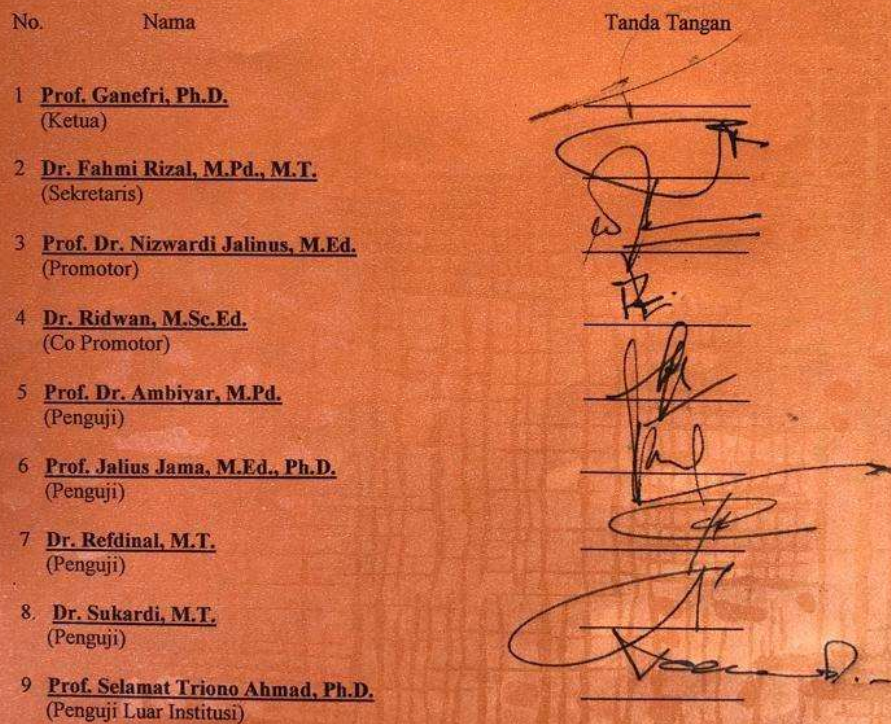 No. Nama Tanda Tangan
1 Prof. Ganefri, Ph.D.
(Ketua)
2 Dr. Fahmi Rizal, M.Pd., M.T.
(Sekretaris)
3 Prof. Dr. Nizwardi Jalinus, M.Ed.
(Promotor)
4 Dr. Ridwan, M.Sc.Ed.
(Co Promotor)
5 Prof. Dr. Ambiyar, M.Pd.
(Penguji)
6 Prof. Jalius Jama, M.Ed., Ph.D.
(Penguji)
7 Dr. Refdinal, M.T.
(Penguji)
8. Dr. Sukardi, M.T.
(Penguji)
9 Prof. Selamat Triono Ahmad, Ph.D.
(Penguji Luar Institusi)